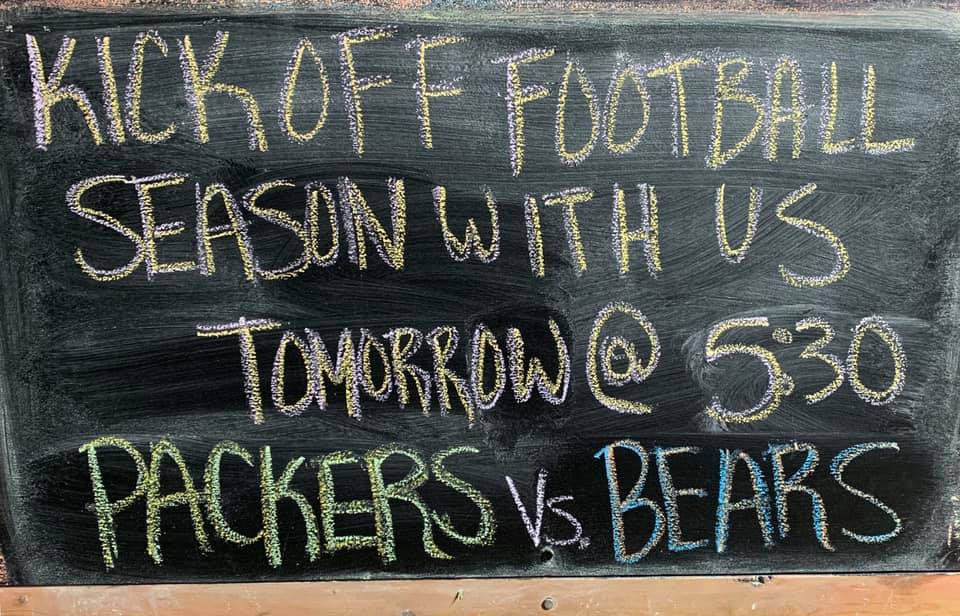 KICK OFF FOOTBALL
SEASON WITH US
TOMORROW @ 5:30
PACKERS Vs. BEARS